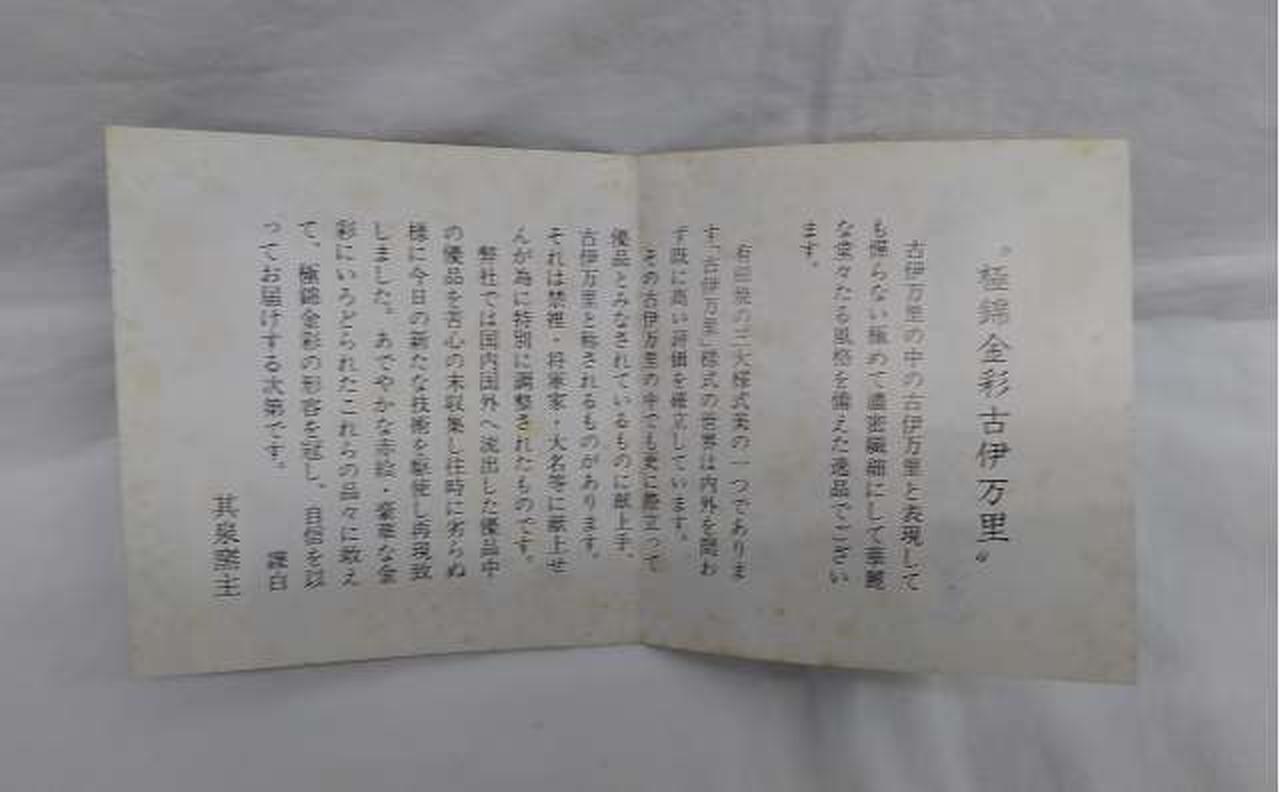 〝極錦金彩古伊万里〟
古伊万里の中の古伊万里と表現して
も憚らない極めて濃密繊細にして華麗
な堂々たる風格を備えた逸品でござい
ます。
有田焼の三大様式美の一つでありま
す「古伊万里」様式の世界は内外を問わ
ず既に高い評価を確立しています。
その古伊万里の中でも更に際立って
優品とみなされているものに献上手、
古伊万里と称されるものがあります。
それは禁裡・将軍家・大名等に献上せ
んが為に特別に調整されたものです。
弊社では国内国外へ流出した優品中
の優品を苦心の末収集し往時に劣らぬ
様に今日の新たな技術を駆使し再現致
しました。あでやかな赤絵・豪華な金
彩にいろどられたこれらの品々に敢え
て、極錦金彩の形容を冠し、自信を以
ってお届けする次第です。
謹白
其泉窯主